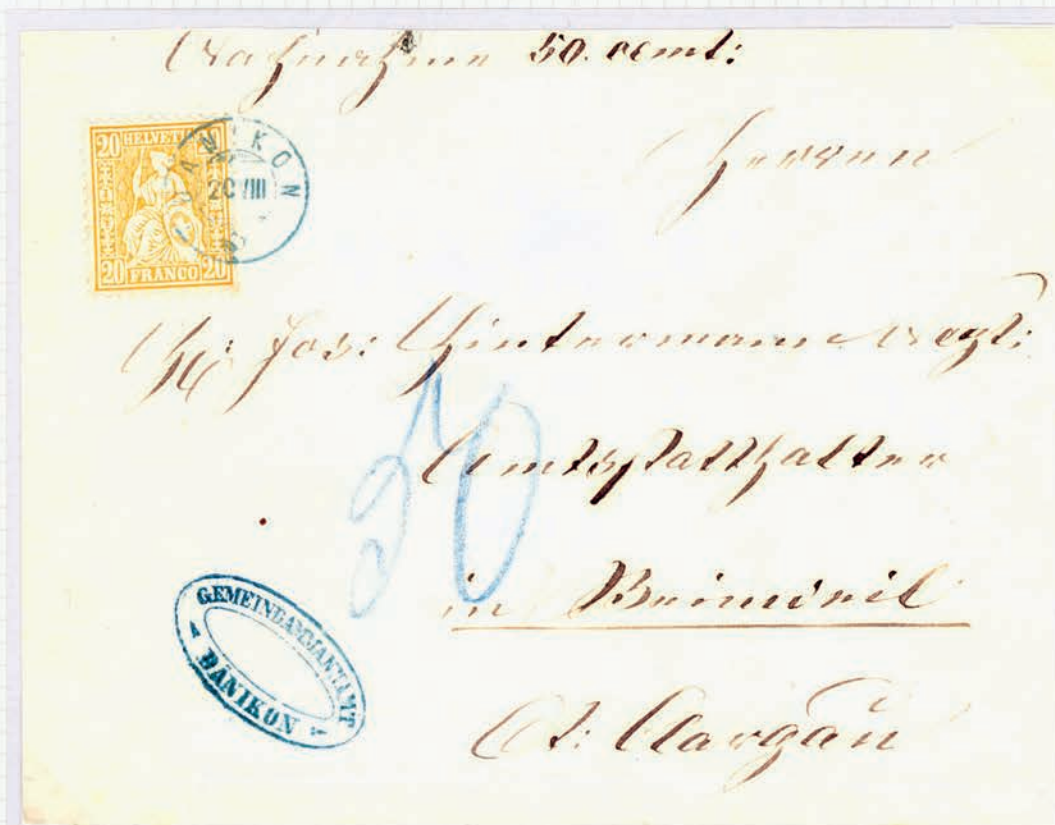 Nachnahme 50. Cent:
20 HELVETIA 20
20 FRANCO 20
DÄNIKON
20 VIII
Herren
Jos: Hintermann
Amtsstatthalter
50
in Beinwil
Ct: Aargau
GEMEINDAMMANNAMT
DÄNIKON